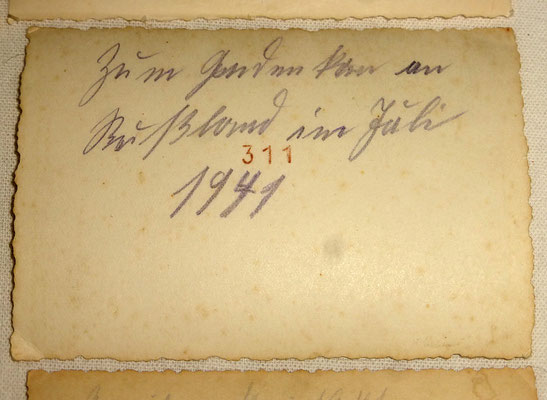 Zum Gedenken an
Rußland im Juli
311
1941